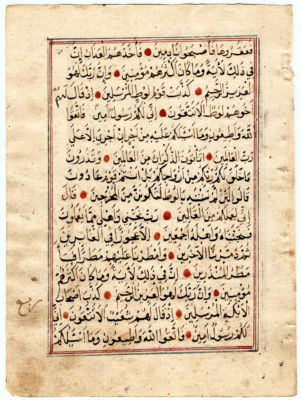 فعقروها فاصبحوا نادمين فاخذهم العذاب ان
في ذلك لاية وما كان اكثرهم مؤمنين وان ربك لهو
العزيز الرحيم كذبت قوم لوط المرسلين اذ قال لهم
اخوهم لوط الا تتقون اني لكم رسول امين فاتقوا
الله واطيعون وما اسئلكم عليه من اجر ان اجري الا على
رب العالمين اتاتون الذكران من العالمين وتذرون
ما خلق لكم ربكم من ازواجكم بل انتم قوم عادون
قالوا لئن لم تنته يا لوط لتكونن من المخرجين قال
اني لعملكم من القالين رب نجني واهلي مما يعملون
فنجيناه واهله اجمعين الا عجوزا في الغابرين
ثم دمرنا الاخرين وامطرنا عليهم مطرا فساء
مطر المنذرين ان في ذلك لاية وما كان اكثرهم
مؤمنين وان ربك لهو العزيز الرحيم كذب اصحاب
الايكة المرسلين اذ قال لهم شعيب الا تتقون اني
لكم رسول امين فاتقوا الله واطيعون وما اسئلكم